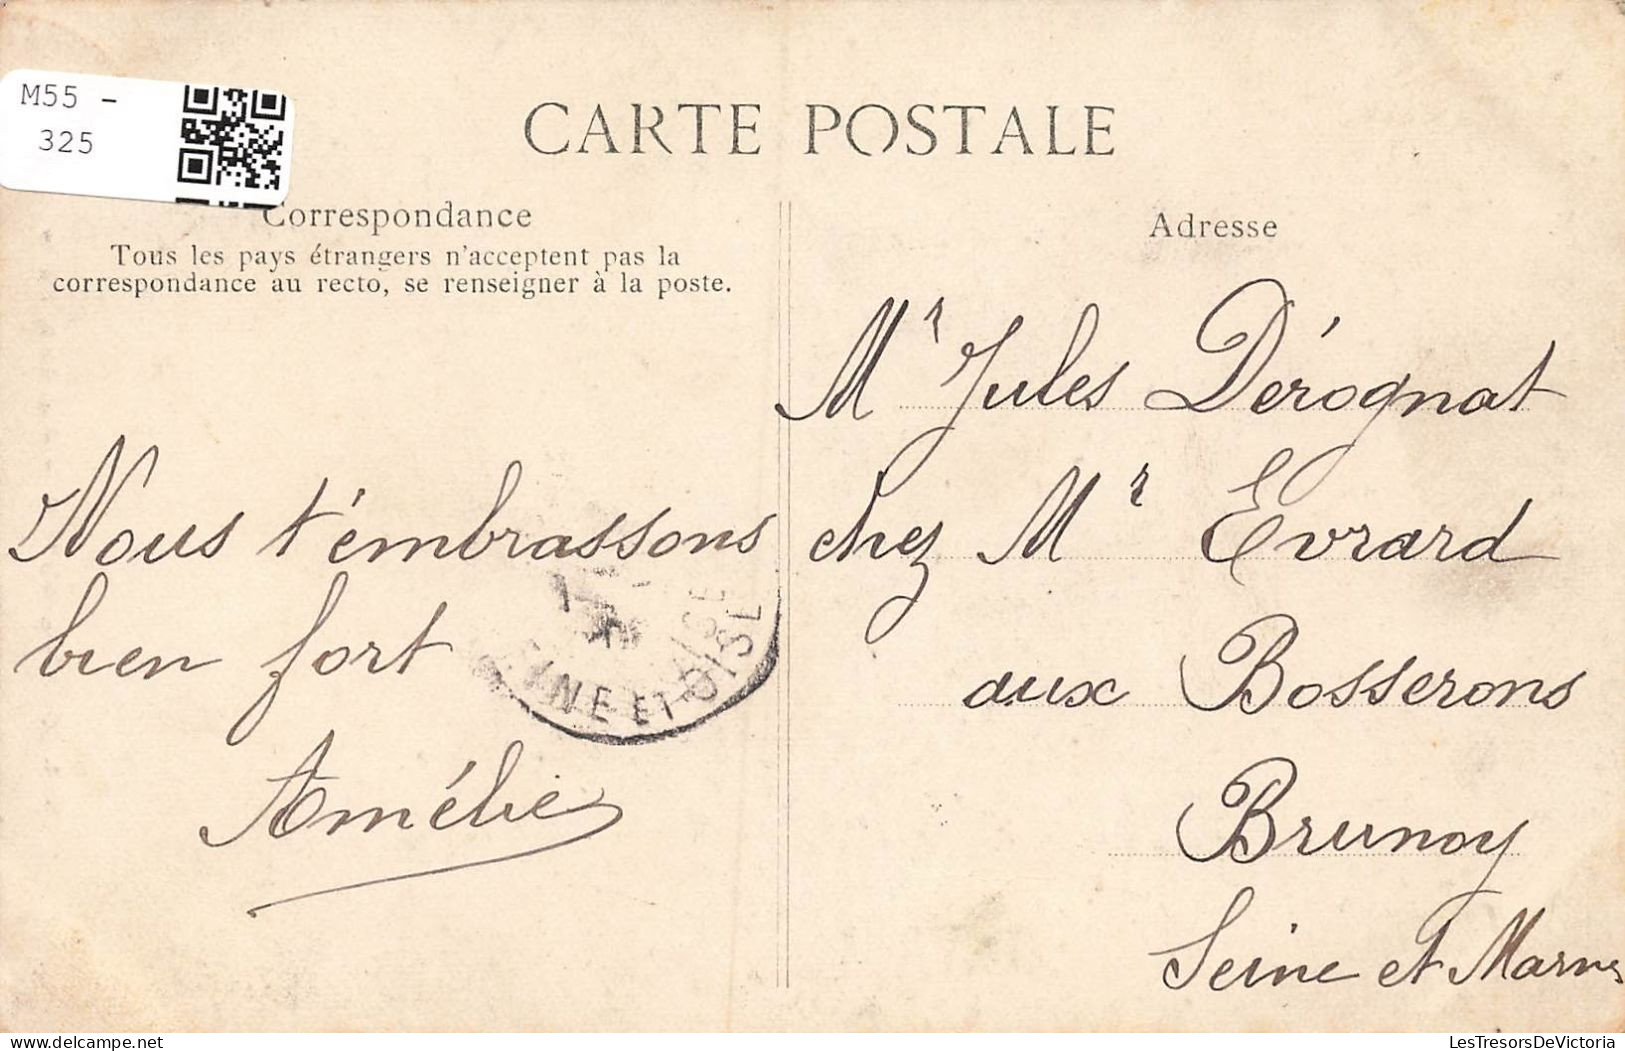 M55 -
325
CARTE POSTALE
Correspondance
Tous les pays étrangers n'acceptent pas la
correspondance au recto, se renseigner à la poste.
Nous t'embrassons
bien fort
Amélie
NE ET OISE
Adresse
Mr Jules Dérognat
chez Mr Evrard
aux Bosserons
Brunoy
Seine et Marne
www.delcampe.net
LesTresorsDeVictoria